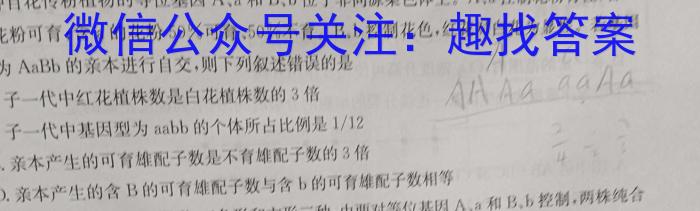 自花传粉植物的等位基因A、a和B、b位于非同源染色体上。
花粉可育
微信公众号关注：趣找答案
控制花色，
为 AaBb 的亲本进行自交，则下列叙述错误的是
子一代中红花植株数是白花植株数的 3 倍
AA Aa aa Aa
子一代中基因型为 aabb 的个体所占比例是 1/12
2/4
亲本产生的可育雄配子数是不育雄配子数的 3 倍
D. 亲本产生的含 B 的可育雄配子数与含 b 的可育雄配子数相等
由两对等位基因 A、a 和 B、b 控制，两株纯合